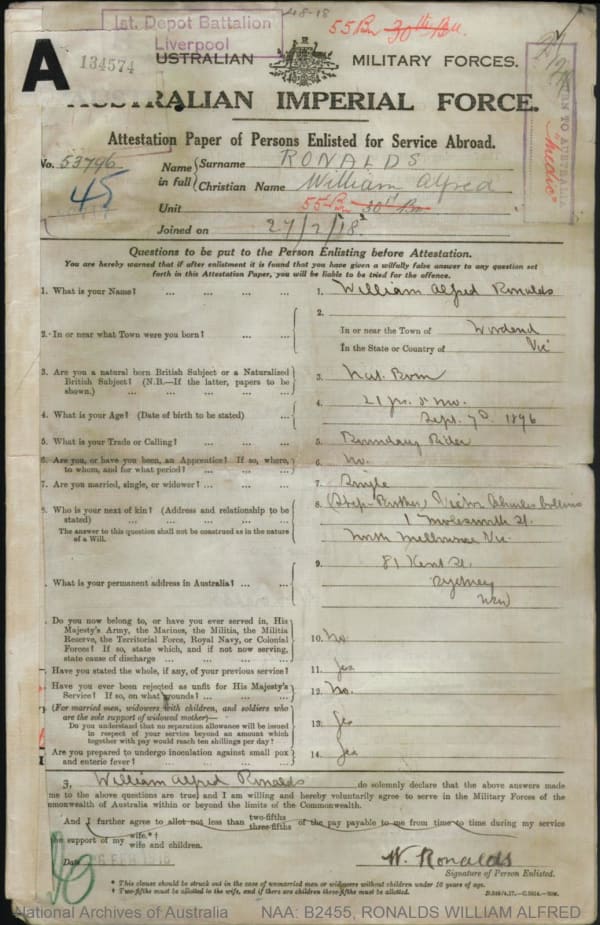 1st. Depot Battalion
Liverpool
48-18
55 Bn 30th Bn.
A
134574
AUSTRALIAN MILITARY FORCES.
AUSTRALIAN IMPERIAL FORCE.
RETURN TO AUSTRALIA
"Medic"
Attestation Paper of Persons Enlisted for Service Abroad.
No. 53796
45
Name in full { Surname RONALDS
Christian Name William Alfred
Unit 55 Bn 30th Bn
Joined on 27/2/18
Questions to be put to the Person Enlisting before Attestation.
You are hereby warned that if after enlistment it is found that you have given a wilfully false answer to any question set
forth in this Attestation Paper, you will be liable to be tried for the offence.
1. What is your Name? ... ... ... ... 1. William Alfred Ronalds
2. In or near what Town were you born? ... ... 2. In or near the Town of Woodend
in the State or Country of Vic
3. Are you a natural born British Subject or a Naturalized
British Subject? (N.B.—If the latter, papers to be
shown.) ... ... ... ... 3. Nat. Born
4. What is your Age? (Date of birth to be stated) ... 4. 21 yrs. 5 mo.
Sept. 7th. 1896
5. What is your Trade or Calling? ... ... ... 5. Boundary Rider
6. Are you, or have you been, an Apprentice? If so, where,
to whom, and for what period? ... ... ... 6. No.
7. Are you married, single, or widower? ... ... ... 7. Single
8. Who is your next of kin? (Address and relationship to be
stated) ... ... ... ...
The answer to this question shall not be construed as in the nature
of a Will.
8. (Step-Brother) Victor Charles Collins
1 Molesworth St.
North Melbourne Vic.
9. What is your permanent address in Australia? ... ... 9. 81 Kent St.
Sydney
NSW
Do you now belong to, or have you ever served in, His
Majesty's Army, the Marines, the Militia, the Militia
Reserve, the Territorial Force, Royal Navy, or Colonial
Forces? If so, state which, and if not now serving,
state cause of discharge ... ... ... ... 10. No.
Have you stated the whole, if any, of your previous service? 11. Yes
Have you ever been rejected as unfit for His Majesty's
Service? If so, on what grounds? ... ... ... 12. No.
(For married men, widowers with children, and soldiers who
are the sole support of widowed mother)—
Do you understand that no separation allowance will be issued
in respect of your service beyond an amount which
together with pay would reach ten shillings per day? 13. Yes
Are you prepared to undergo inoculation against small pox
and enteric fever? ... ... ... ... 14. Yes
I, William Alfred Ronalds do solemnly declare that the above answers made
me to the above questions are true, and I am willing and hereby voluntarily agree to serve in the Military Forces of the
mmonwealth of Australia within or beyond the limits of the Commonwealth.
And I further agree to allot not less than two-fifths three-fifths of the pay payable to me from time to time during my service
the support of my wife.*† wife and children.
Date 26 FEB 1918
W. Ronalds
Signature of Person Enlisted.
* This clause should be struck out in the case of unmarried men or widowers without children under 16 years of age.
† Two-fifths must be allotted to the wife, and if there are children three-fifths must be allotted.
National Archives of Australia NAA: B2455, RONALDS WILLIAM ALFRED